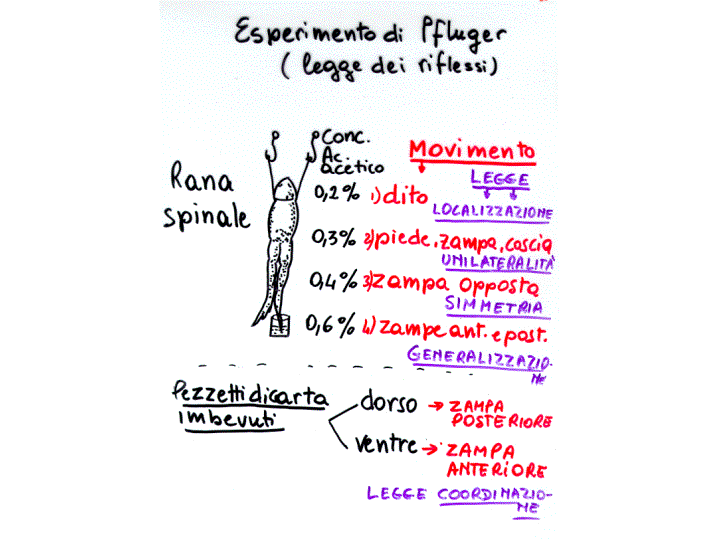 Esperimento di Pfluger
(legge dei riflessi)
Rana
spinale
Conc.
Ac.
acetico
Movimento
LEGGE
0,2% 1) dito
LOCALIZZAZIONE
0,3% 2) piede, zampa, coscia
UNILATERALITÀ
0,4% 3) zampa opposta
SIMMETRIA
0,6% 4) zampe ant. e post.
GENERALIZZAZIO-
NE
Pezzetti di carta
imbevuti
dorso → ZAMPA
POSTERIORE
ventre → ZAMPA
ANTERIORE
LEGGE COORDINAZIO-
NE